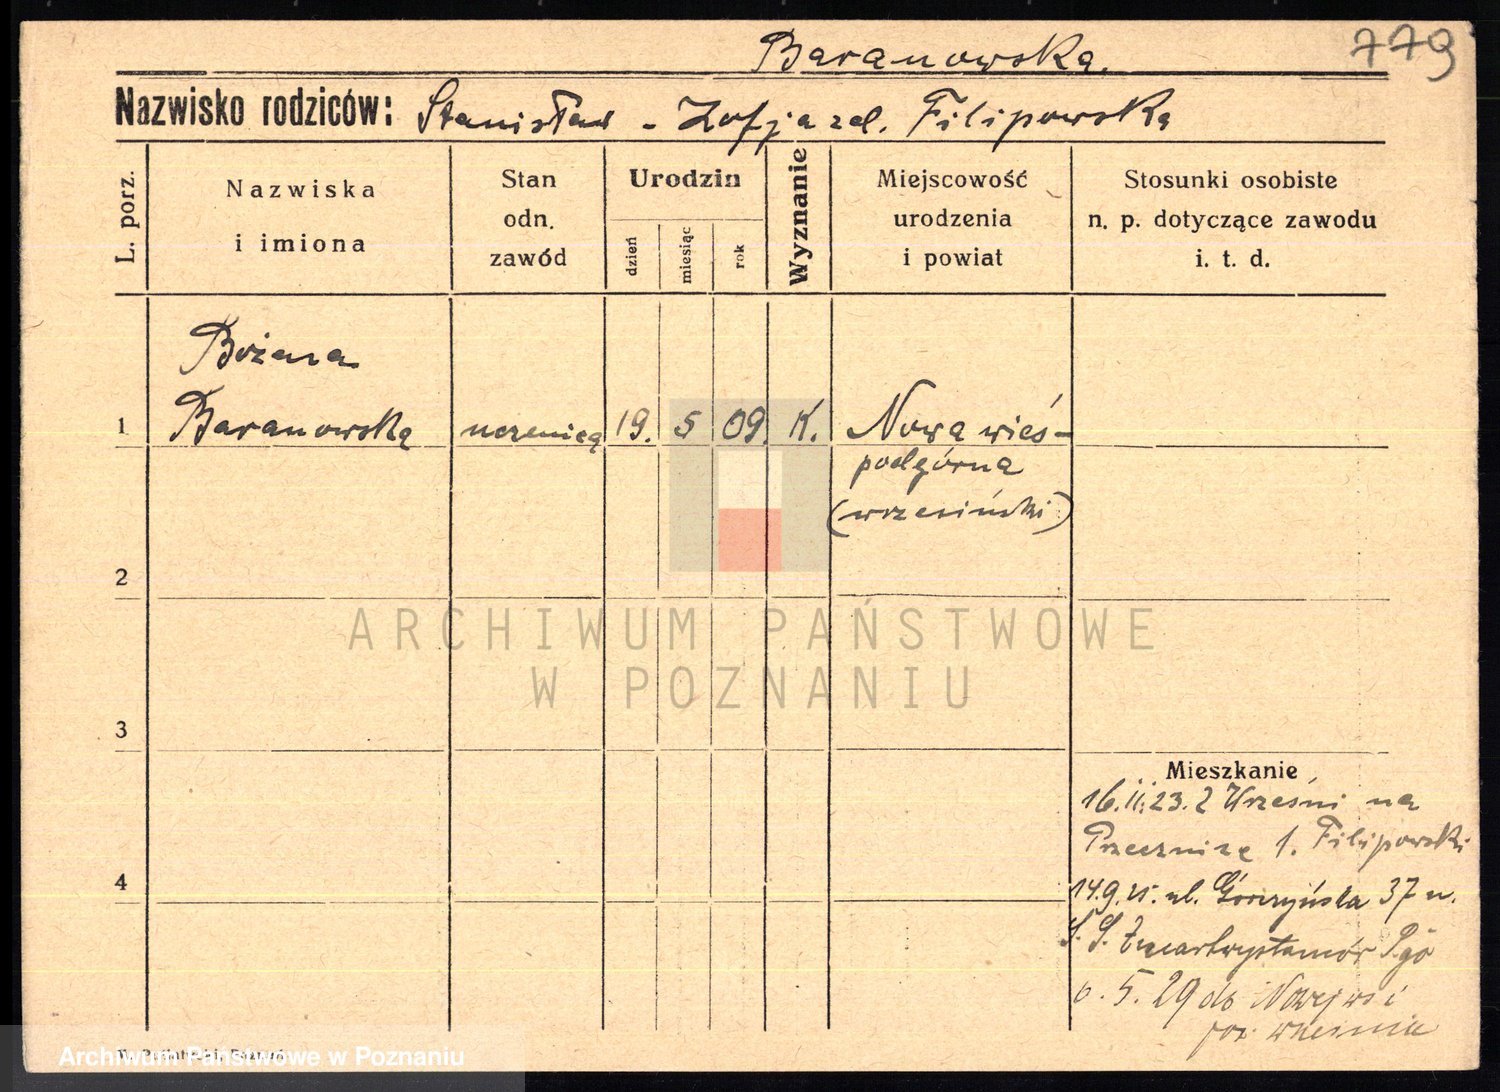 779
Baranowska.
Nazwisko rodziców: Stanisław - Zofja zd. Filipowska
L. porz.
Nazwiska
i imiona
Stan
odn.
zawód
Urodzin
dzień
miesiąc
rok
Wyznanie
Miejscowość
urodzenia
i powiat
Stosunki osobiste
n. p. dotyczące zawodu
i. t. d.
Bożena
1 Baranowska uczenicą 19. 5 09. K. Nowa wieś-
podgórna
(wrzesiński)
2
ARCHIWUM PAŃSTWOWE
W POZNANIU
3
Mieszkanie
16.II.23. z Wrześni na
Przecznicę 1. Filipowski
4
14.9.25. ul. Górczyńska 37 u.
S. S. Zmartwychstanek Pgo
6. 5. 29 do Nowejwsi
pow września
Archiwum Państwowe w Poznaniu